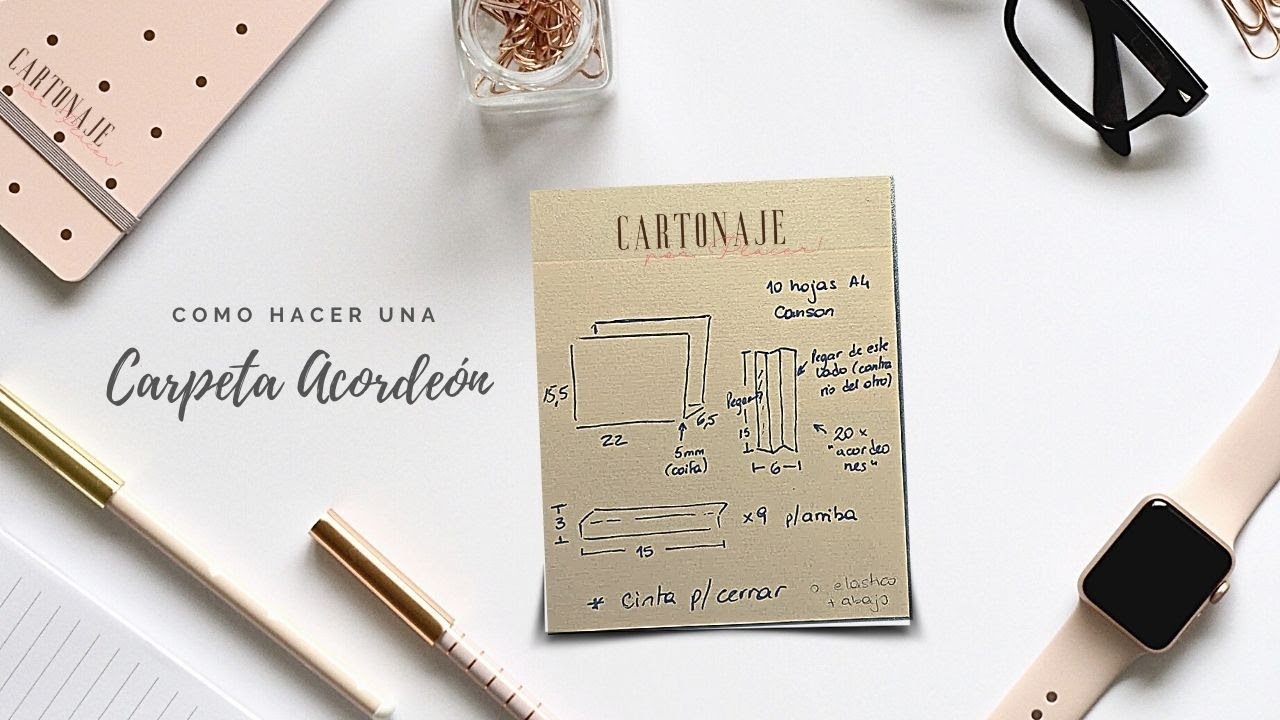 CARTONAJE
por Placer!
COMO HACER UNA
Carpeta Acordeón
CARTONAJE
por Placer!
10 hojas A4
Canson
15,5
22
6,5
5mm
(coifa)
Pegar
15
6
Pegar de este
lado (contra
rio del otro)
20 x
"acordeo
nes"
3
15
x9 p/arriba
* cinta p/ cerrar
o elastico
+ abajo